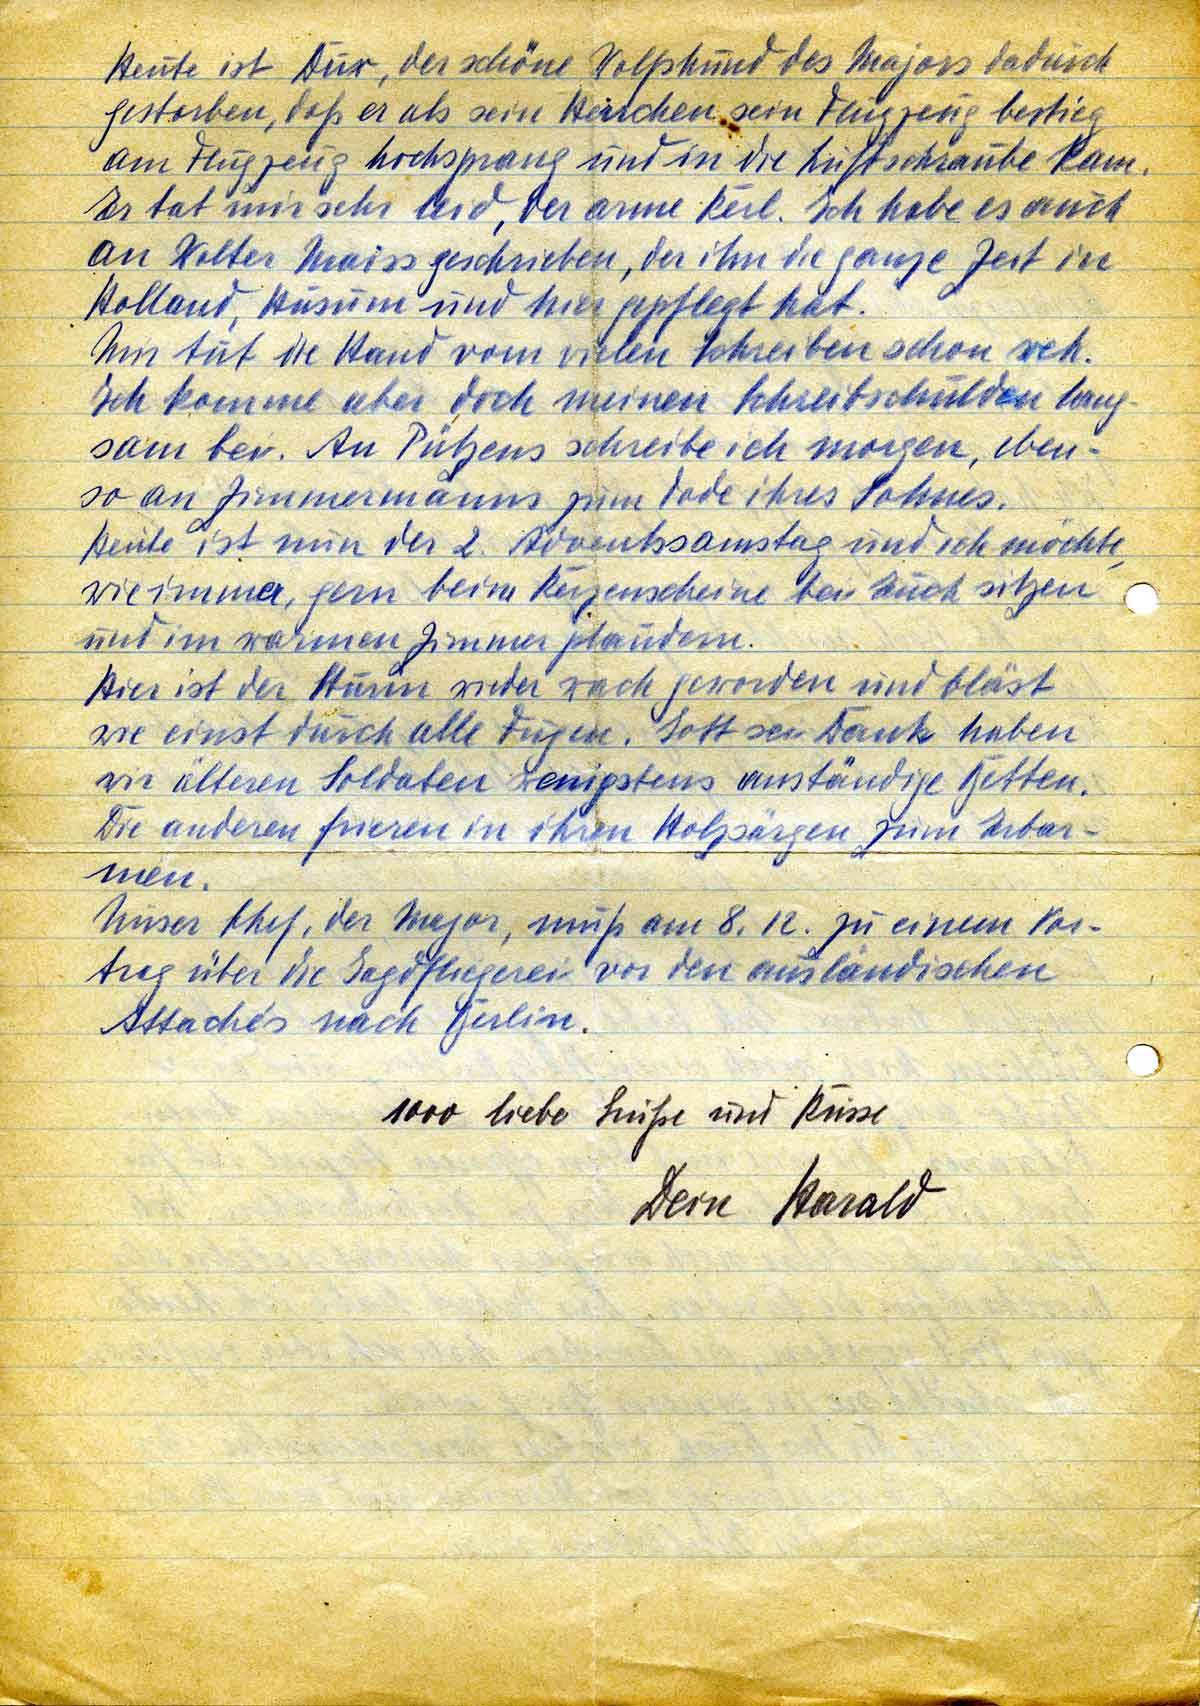 Heute ist Dux, der schöne Wolfshund des Majors dadurch
gestorben, daß er als sein Herrchen sein Flugzeug bestieg
am Flugzeug hochsprang und in die Luftschraube kam.
Er tat mir sehr leid, der arme Kerl. Ich habe es auch
an Walter geschrieben, der ihn die ganze Zeit in
Holland, Husum und hier gepflegt hat.
Mir tut die Hand vom vielen Schreiben schon weh.
Ich komme aber doch meinen Schreibschulden lang-
sam bei. An Pützens schreibe ich morgen, eben-
so an Zimmermanns zum Tode ihres Sohnes.
Heute ist nun der 2. Adventssamstag und ich möchte,
wie immer, gern beim Kerzenscheine bei Euch sitzen
und im warmen Zimmer plaudern.
Hier ist der Sturm wieder wach geworden und bläst
wie einst durch alle Fugen. Gott sei Dank haben
wir älteren Soldaten wenigstens anständige Betten.
Die anderen frieren in ihren Holzsärgen zum Erbar-
men.
Unser Chef, der Major, muß am 8. 12. zu einem Vor-
trag über die Jagdfliegerei vor den ausländischen
Attachés nach Berlin.
1000 liebe Grüße und Küsse
Dein Harald